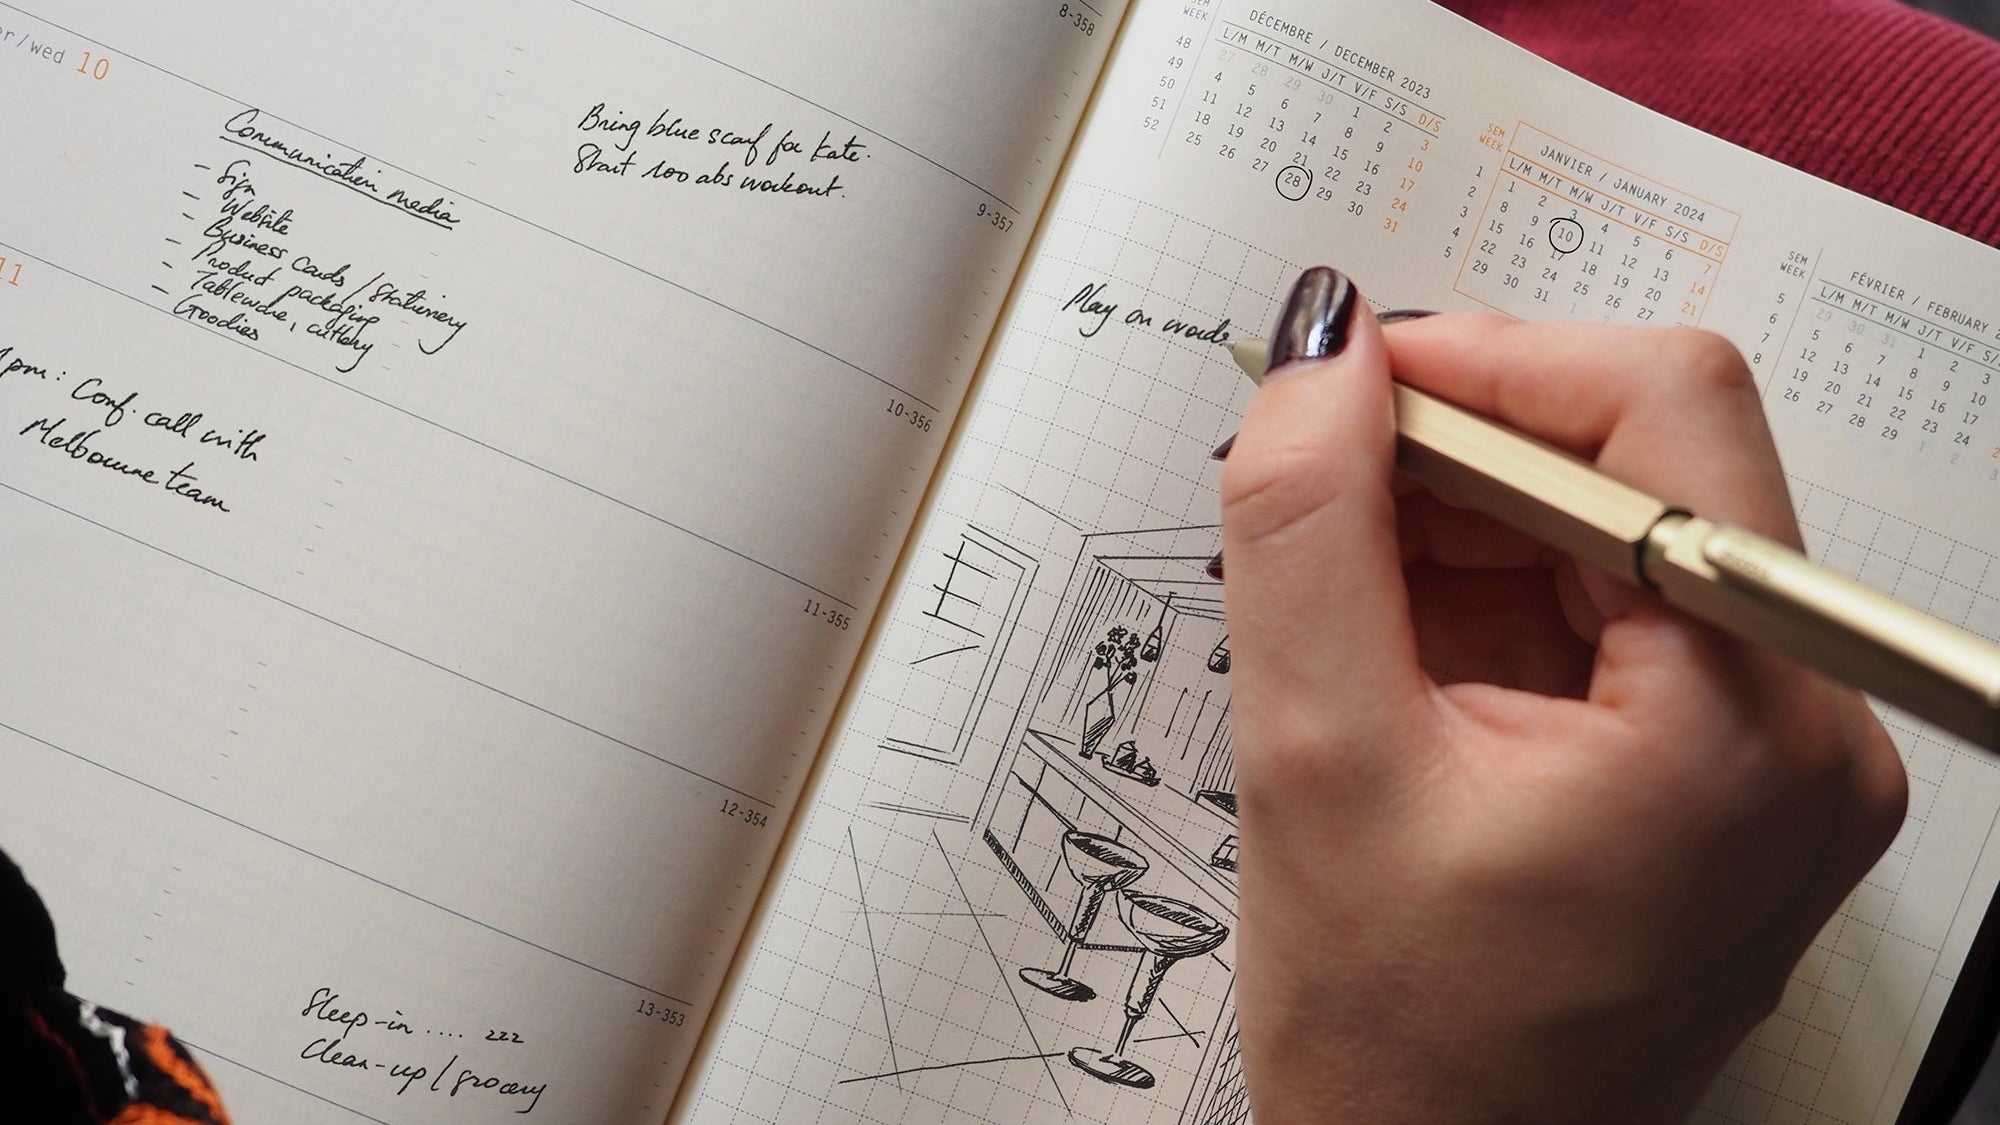 8-358
er/wed 10
Bring blue scarf for Kate.
Start 100 abs workout.
9-357
Communication media
- Sign
- Website
- Business cards / Stationery
- Product packaging
- Tableware, cutlery
- Goodies
10-356
11
1pm: Conf. call with
Melbourne team
11-355
12-354
Sleep-in .... zzz
Clean-up / grocery
13-353
SEM
WEEK
DÉCEMBRE / DECEMBER 2023
L/M M/T M/W J/T V/F S/S D/S
48 27 28 29 30 1 2 3
49 4 5 6 7 8 9 10
50 11 12 13 14 15 16 17
51 18 19 20 21 22 23 24
52 25 26 27 28 29 30 31
SEM
WEEK
JANVIER / JANUARY 2024
L/M M/T M/W J/T V/F S/S D/S
1 1 2 3 4 5 6 7
2 8 9 10 11 12 13 14
3 15 16 17 18 19 20 21
4 22 23 24 25 26 27
5 29 30 31 1 2
SEM
WEEK
FÉVRIER / FEBRUARY 2
L/M M/T M/W J/T V/F S/S
5 29 30 31 1 2 3
6 5 6 7 8 9 10
7 12 13 14 15 16 17
8 19 20 21 22 23 24
26 27 28 29 1 2 3
Play on words